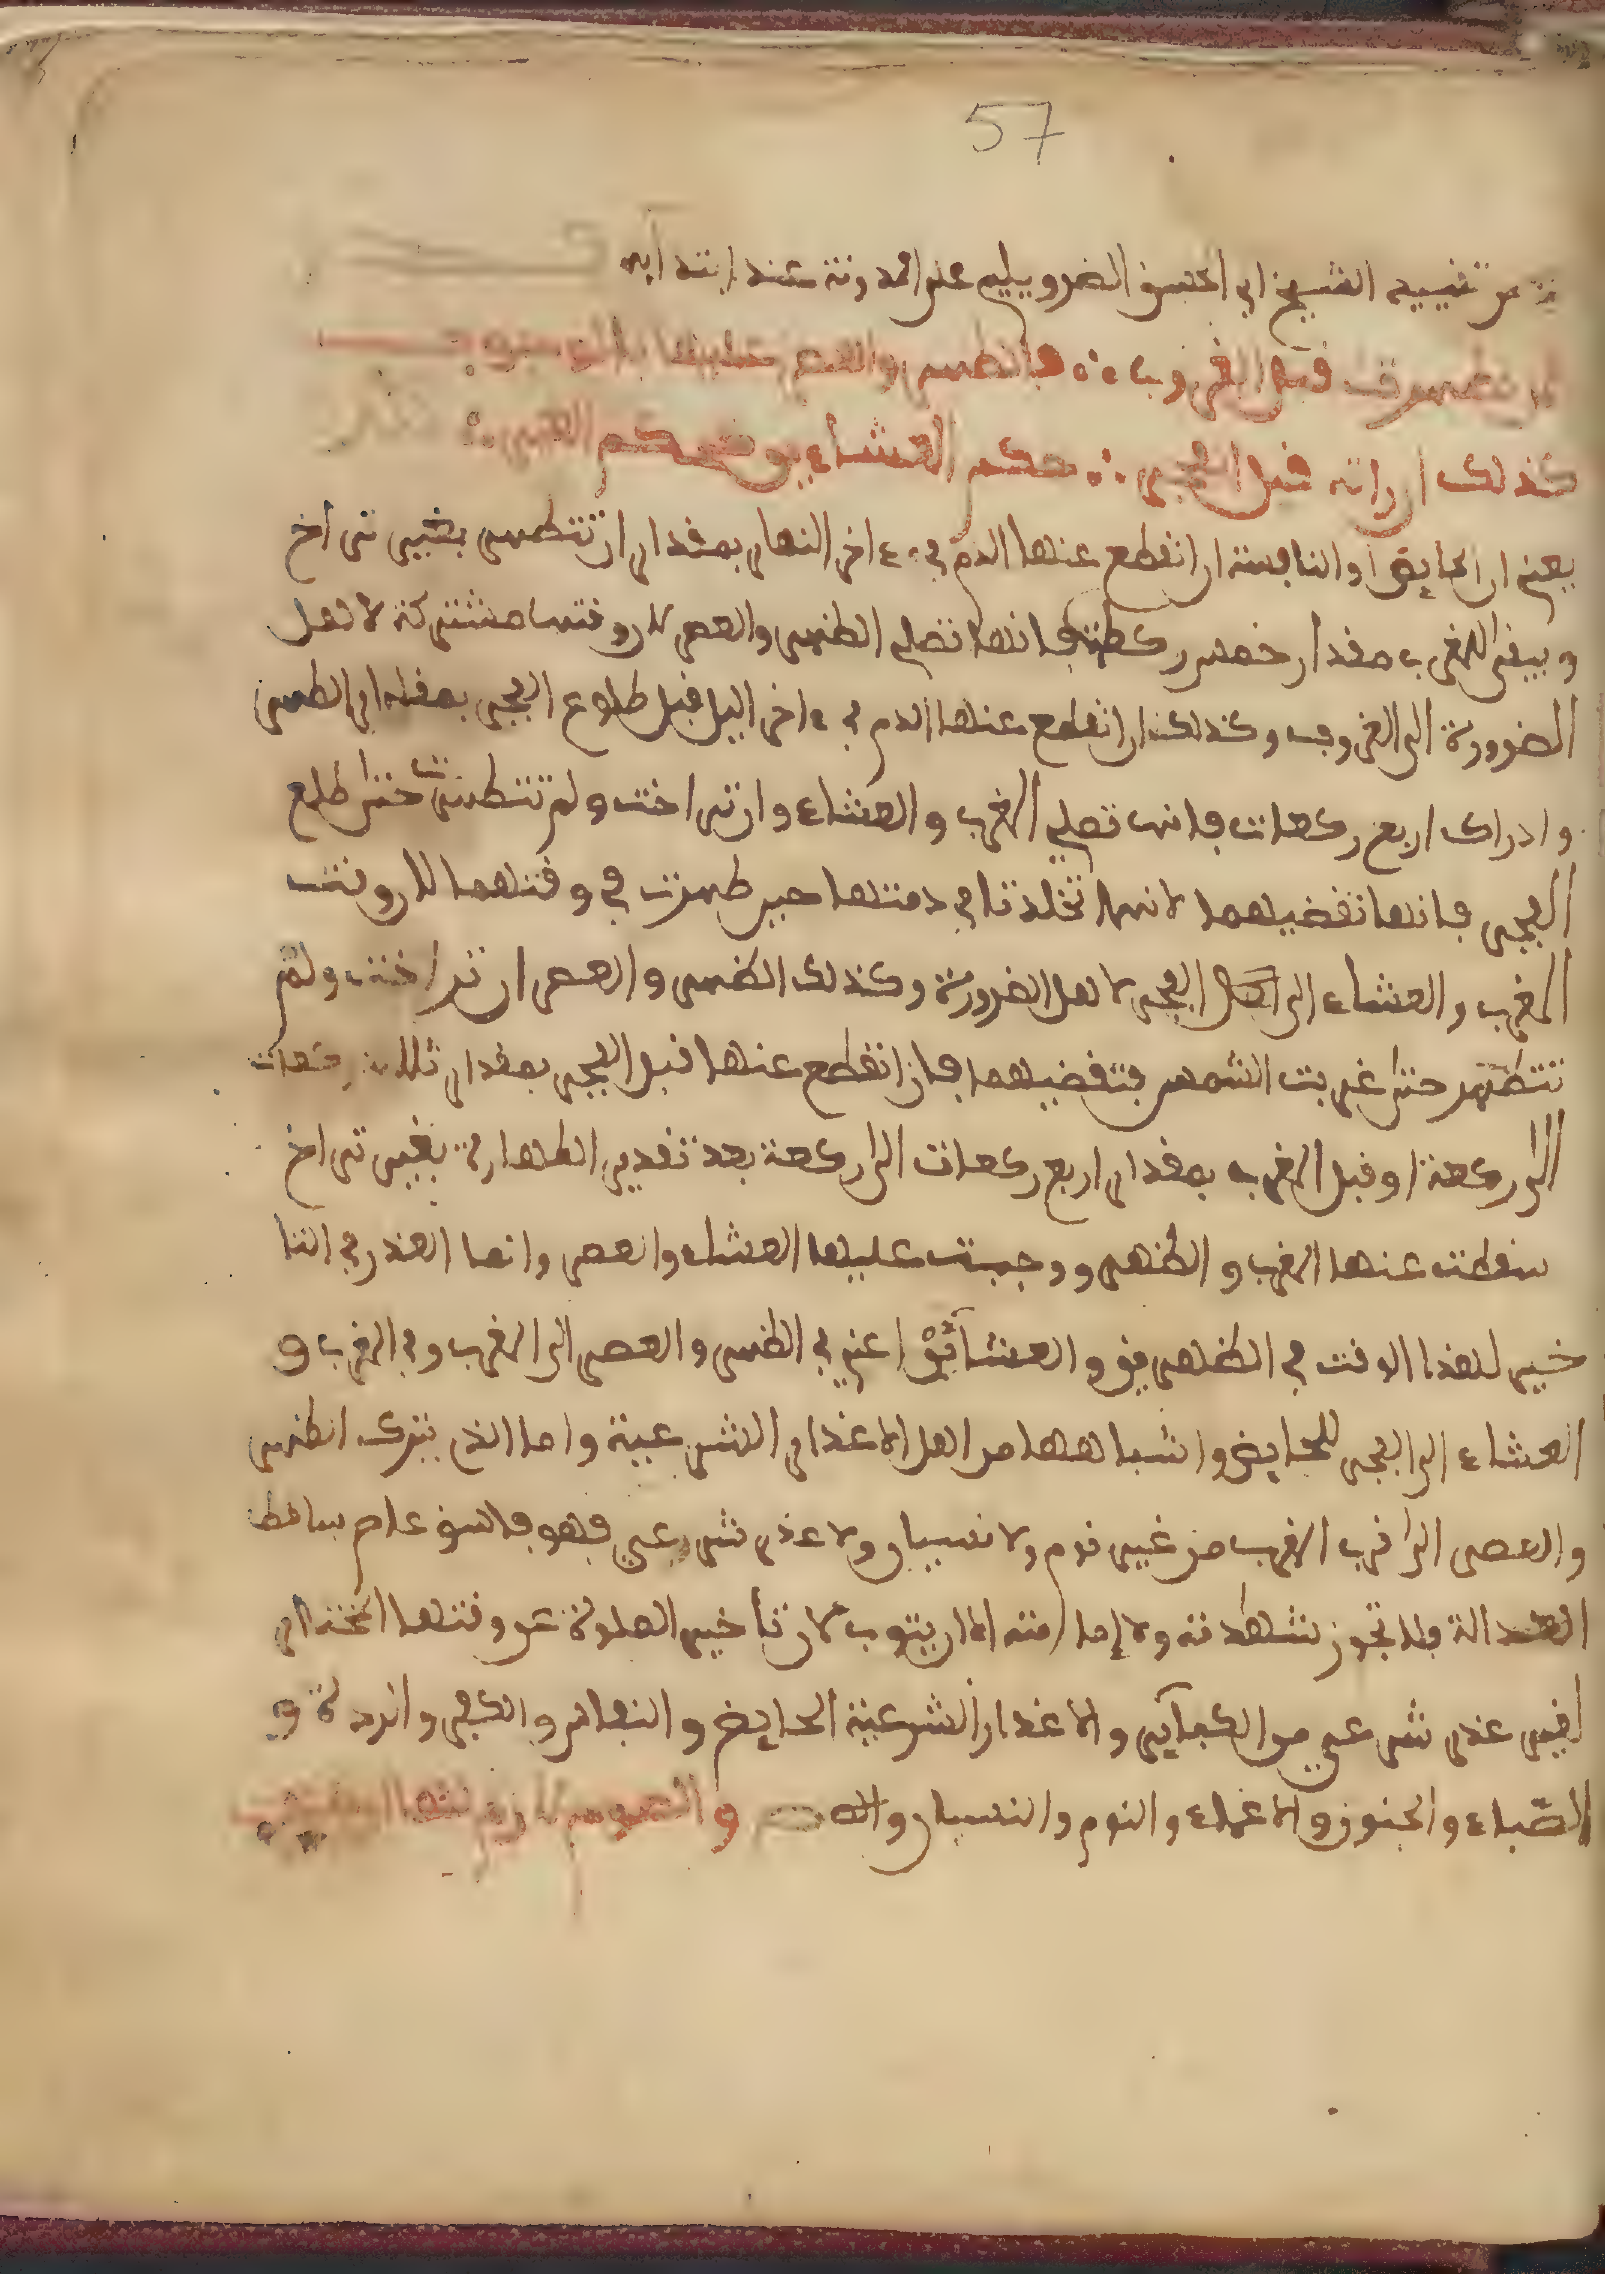 57
من تفييد الشيخ ابي الحسن الضرويلي على المدونة عند ابتدايه
ان طهرت قبل الغروب فالظهر والعصر عليها بالوجوب
كذلك ان راته قبل الفجر حكم العشاءين حكم العصر
يعني ان الحايض او النافسة ان انقطع عنها الدم في ءاخر النهار بمقدار ان تتطهر بغير تراخ
ويبقى للمغرب مقدار خمس ركعات فانها تصلي الظهر والعصر لان وقتهما مشتركة لاهل
الضرورة الى الغروب وكذلك ان انقطع عنها الدم في ءاخر اليل قبل طلوع الفجر بمقدار الطهر
وادراك اربع ركعات فانها تصلي المغرب والعشاء وان تراخت ولم تتطهرت حتى طلع
الفجر فانها تقضيهما لانهما تخلدتا في ذمتها حين طهرت في وقتهما لان وقت
المغرب والعشاء الى الفجر لاهل الضرورة وكذلك الظهر والعصر ان تراخت ولم
تتطهر حتى غربت الشمس فتقضيهما فان انقطع عنها قبل الفجر بمقدار ثلاث ركعات
الى ركعة او قبل المغرب بمقدار اربع ركعات الى ركعة بعد تقدير الطهارة بغير تراخ
سقطت عنها المغرب والظهر ووجبت عليها العشاء والعصر وانما العذر في التا
خير لهذا الوقت في الظهرين والعشائين اعني في الظهر والعصر الى المغرب وفي المغرب و
العشاء الى الفجر للحايض واشباهها من اهل الاعذار الشرعية واما الذي يترك الظهر
والعصر الى قرب المغرب من غير نوم ولا نسيان ولا عذر شرعي فهو فاسق عاص ساقط
العدالة فلا تجوز شهادته ولا إمامته الا ان يتوب لان تاخير الصلوة عن وقتها المختار
لغير عذر شرعي من الكباير والاعذار الشرعية الحايض والنفاس والكفر والردة و
الصباء والجنون والاغماء والنوم والنسيان والله والصوم